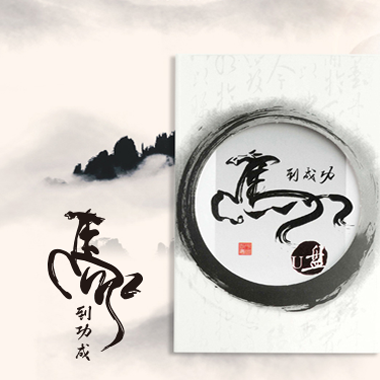 馬
到功成
馬
到成功
U盘